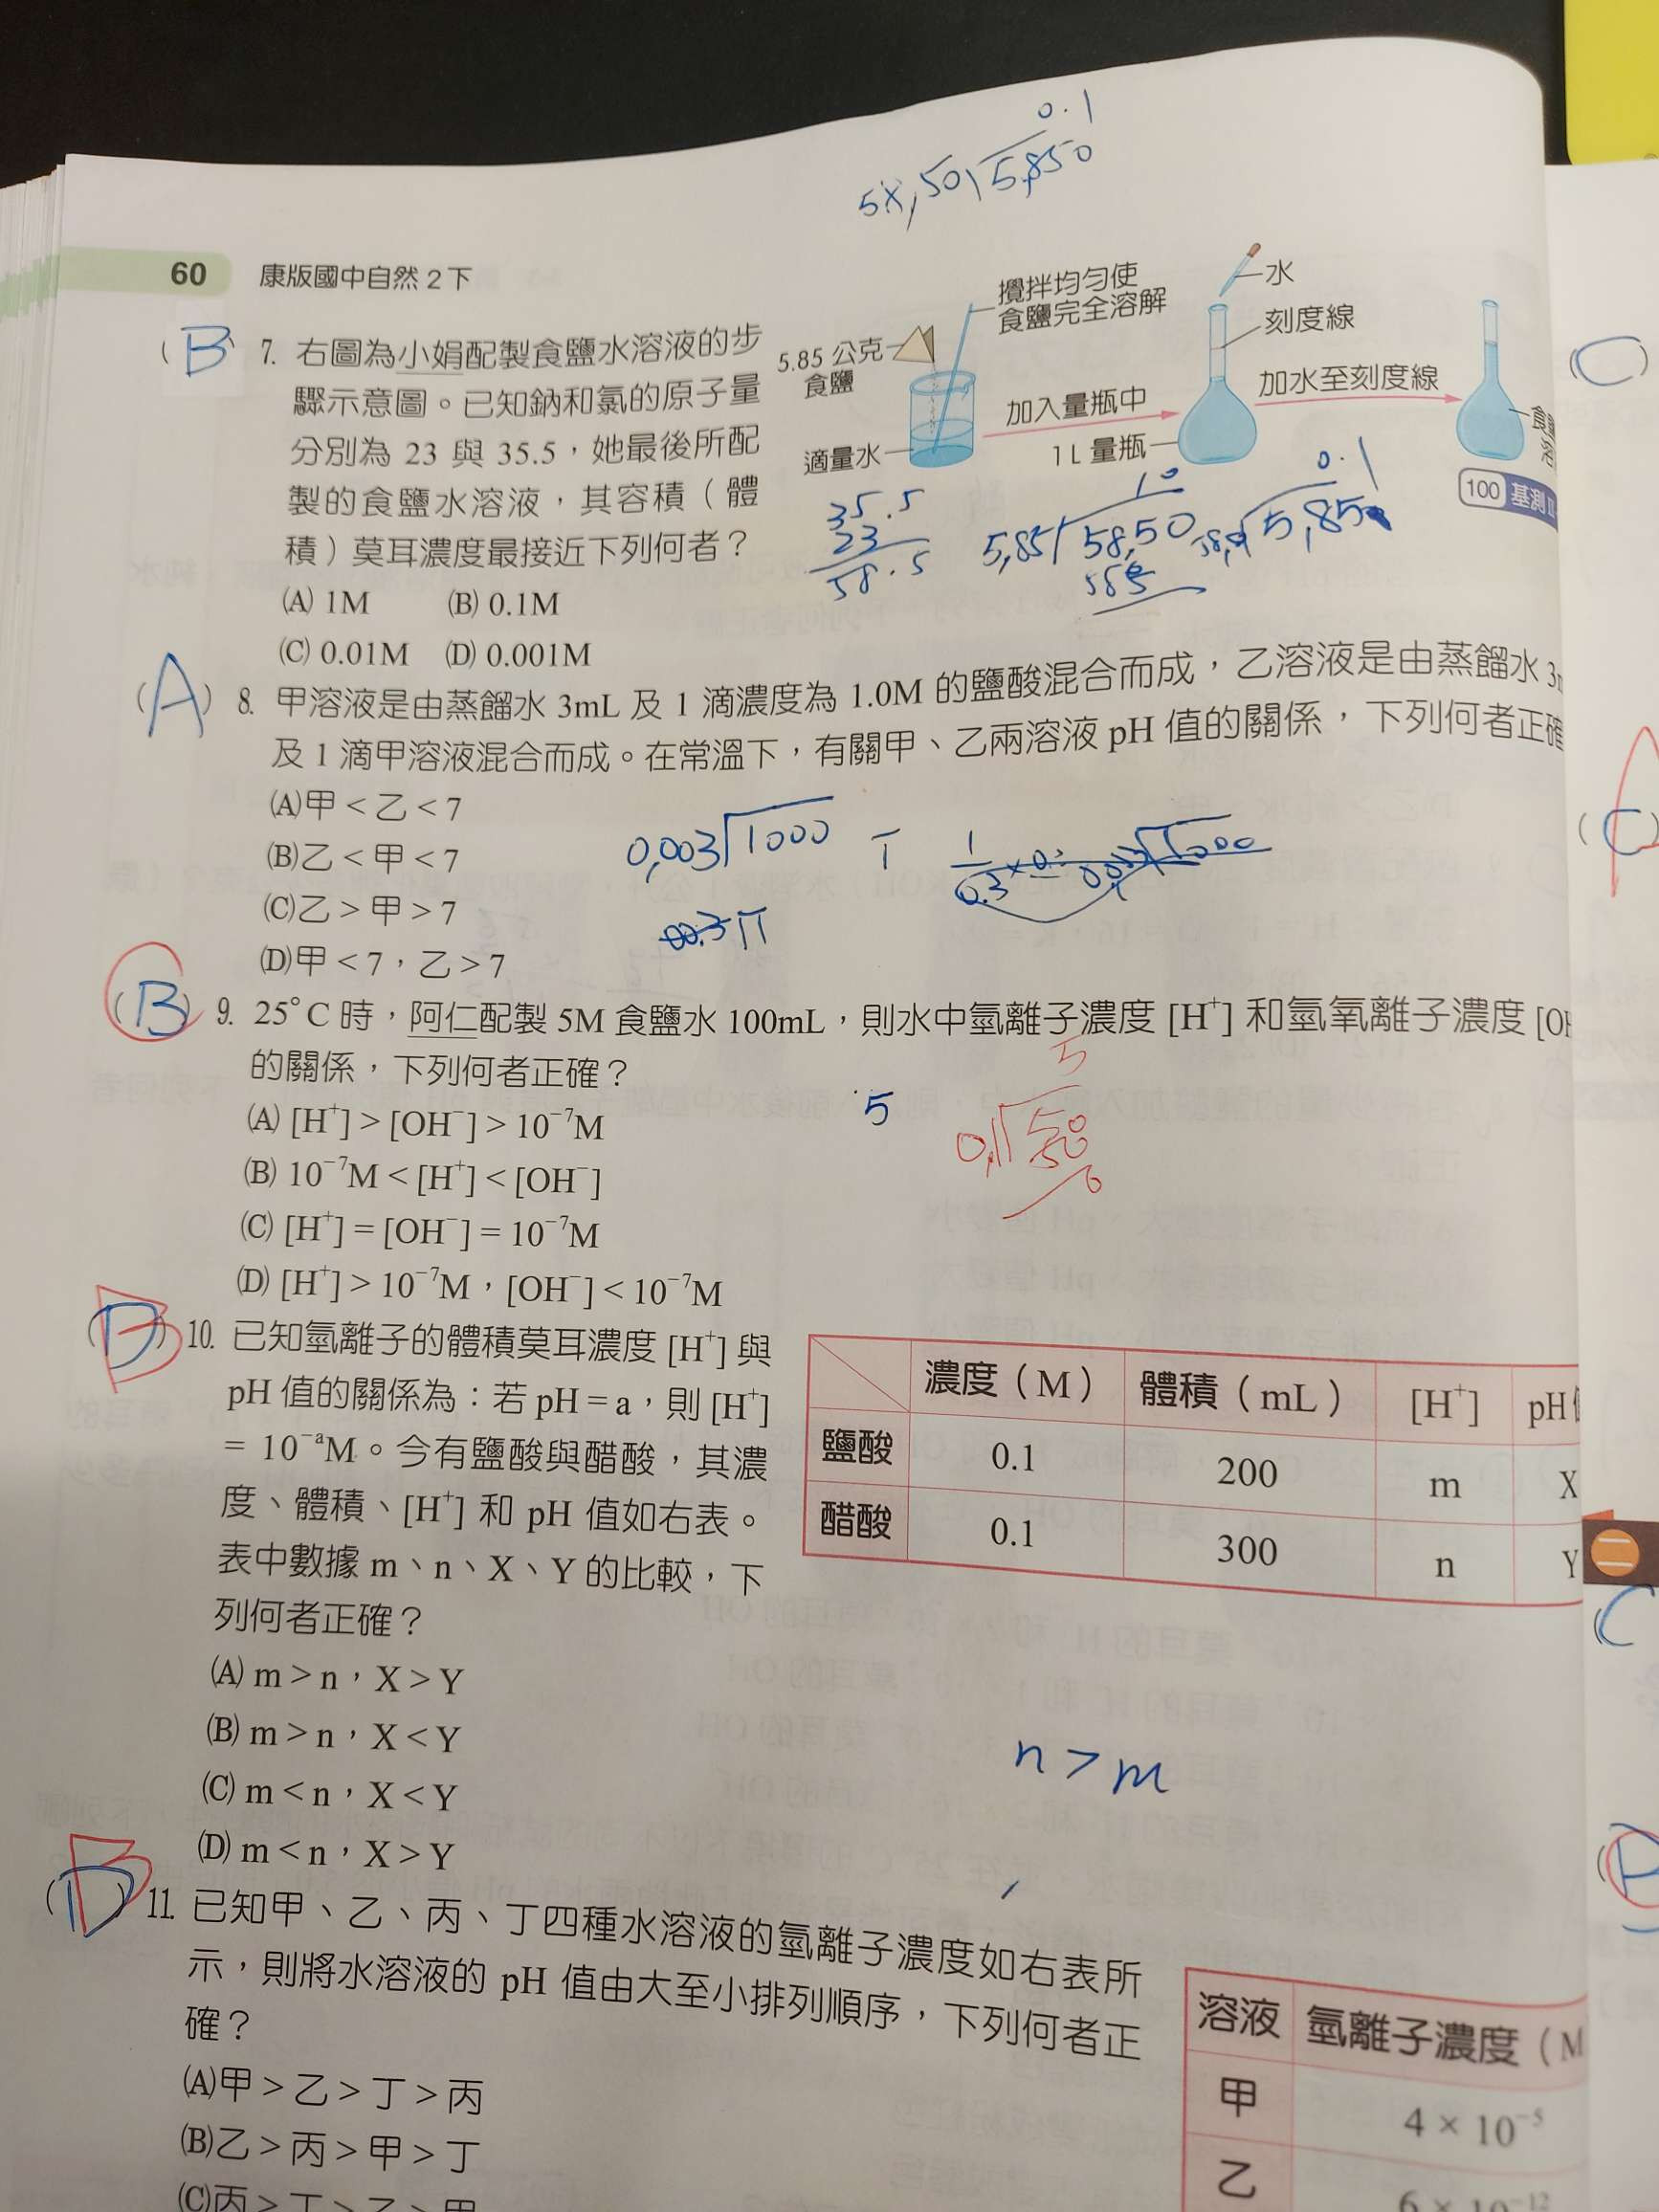 0.1
5.850
60 康版國中自然 2 下
(B) 7. 右圖為小娟配製食鹽水溶液的步
驟示意圖。已知鈉和氯的原子量
分別為 23 與 35.5，她最後所配
製的食鹽水溶液，其容積（體
積）莫耳濃度最接近下列何者？
(A) 1M (B) 0.1M
(C) 0.01M (D) 0.001M
5.85 公克
食鹽
適量水
攪拌均勻使
食鹽完全溶解
加入量瓶中
1 L 量瓶
水
刻度線
加水至刻度線
食
100 基測
35.5
23
58.5
10
5.85 58.50
585
0.1
5.85
(A) 8. 甲溶液是由蒸餾水 3mL 及 1 滴濃度為 1.0M 的鹽酸混合而成，乙溶液是由蒸餾水 3
及 1 滴甲溶液混合而成。在常溫下，有關甲、乙兩溶液 pH 值的關係，下列何者正確
(A)甲 < 乙 < 7
(B)乙 < 甲 < 7
(C)乙 > 甲 > 7
(D)甲 < 7，乙 > 7
0.003 1000
(B) 9. 25°C 時，阿仁配製 5M 食鹽水 100mL，則水中氫離子濃度 [H⁺] 和氫氧離子濃度 [OH
的關係，下列何者正確？
(A) [H⁺] > [OH⁻] > 10⁻⁷M
(B) 10⁻⁷M < [H⁺] < [OH⁻]
(C) [H⁺] = [OH⁻] = 10⁻⁷M
(D) [H⁺] > 10⁻⁷M，[OH⁻] < 10⁻⁷M
5
5
0.1 50
50
0
(D) B 10. 已知氫離子的體積莫耳濃度 [H⁺] 與
pH 值的關係為：若 pH = a，則 [H⁺]
= 10⁻ᵃM。今有鹽酸與醋酸，其濃
度、體積、[H⁺] 和 pH 值如右表。
表中數據 m、n、X、Y 的比較，下
列何者正確？
(A) m > n，X > Y
(B) m > n，X < Y
(C) m < n，X < Y
(D) m < n，X > Y
濃度（M） 體積（mL） [H⁺] pH
鹽酸 0.1 200 m X
醋酸 0.1 300 n Y
n > m
(D) B 11. 已知甲、乙、丙、丁四種水溶液的氫離子濃度如右表所
示，則將水溶液的 pH 值由大至小排列順序，下列何者正
確？
(A)甲 > 乙 > 丁 > 丙
(B)乙 > 丙 > 甲 > 丁
(C)丙 > 丁 > 乙 > 甲
溶液 氫離子濃度（M
甲 4 × 10⁻⁵
乙 6 × 10⁻¹²
(C)
(C)
二